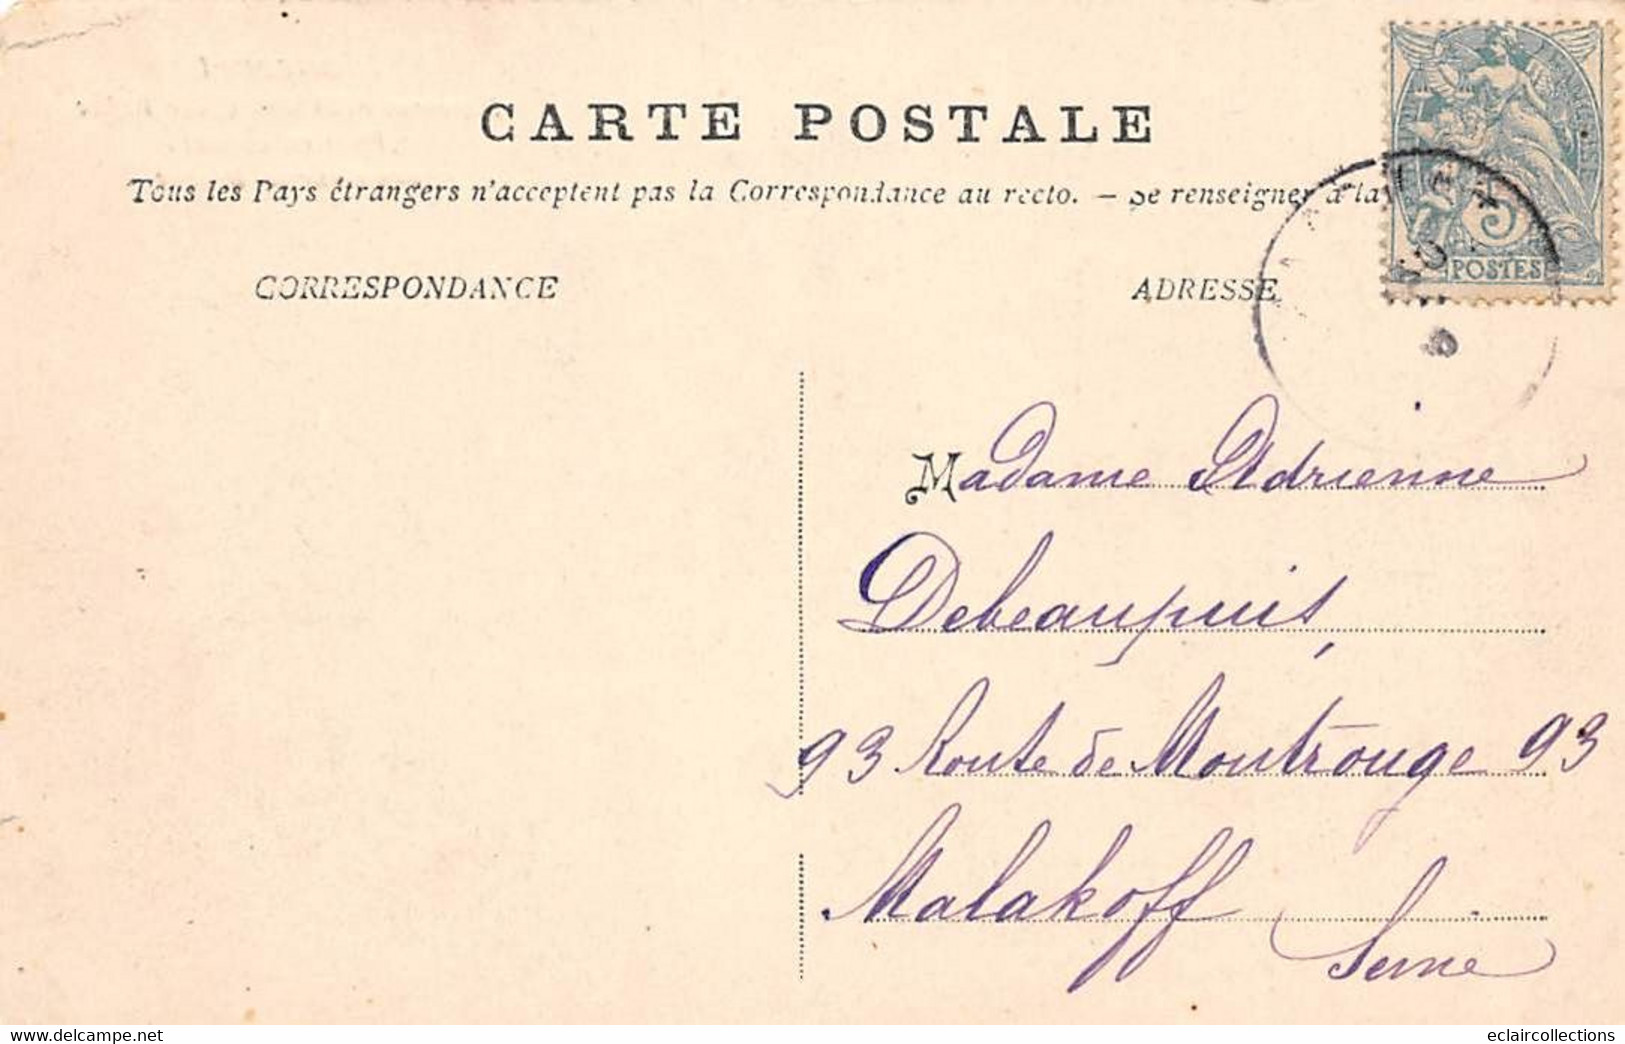 CARTE POSTALE
Tous les Pays étrangers n'acceptent pas la Correspondance au recto. — Se renseigner à la
CORRESPONDANCE
ADRESSE
5
POSTES
Madame Adrienne
Debeaupuis,
93 Route de Montrouge 93
Malakoff
Seine
eclaircollections